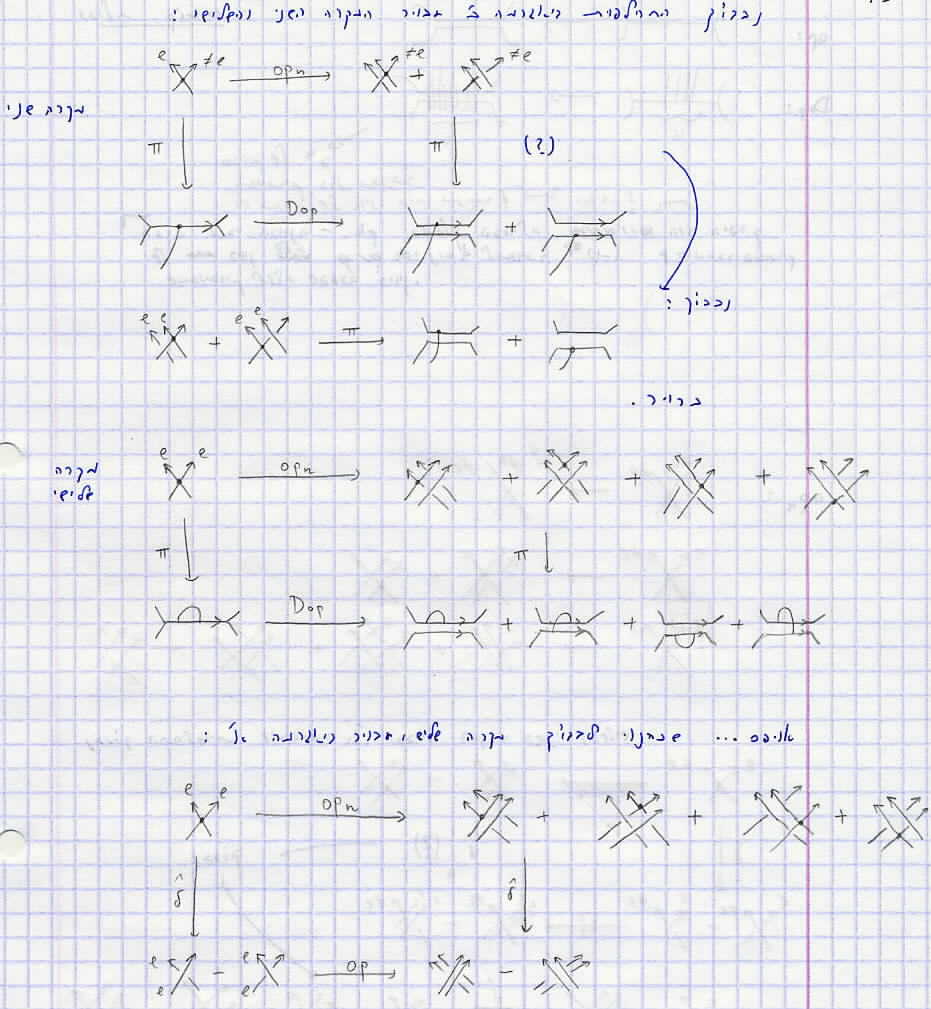 נבדוק התחלפות דיאגרמה ב' עבור המקרה השני והשלישי :
e ≠e opn + ≠e ≠e
מקרה שני
π π (?)
Dop +
נבדוק :
e e + e e π +
ברור .
מקרה שלישי
e e opn + + +
π π
Dop + + +
אופס ... שכחנו לבדוק מקרה שלישי עבור דיאגרמה א' :
e e opn + + +
δ̂ δ̂
e e - e e op -